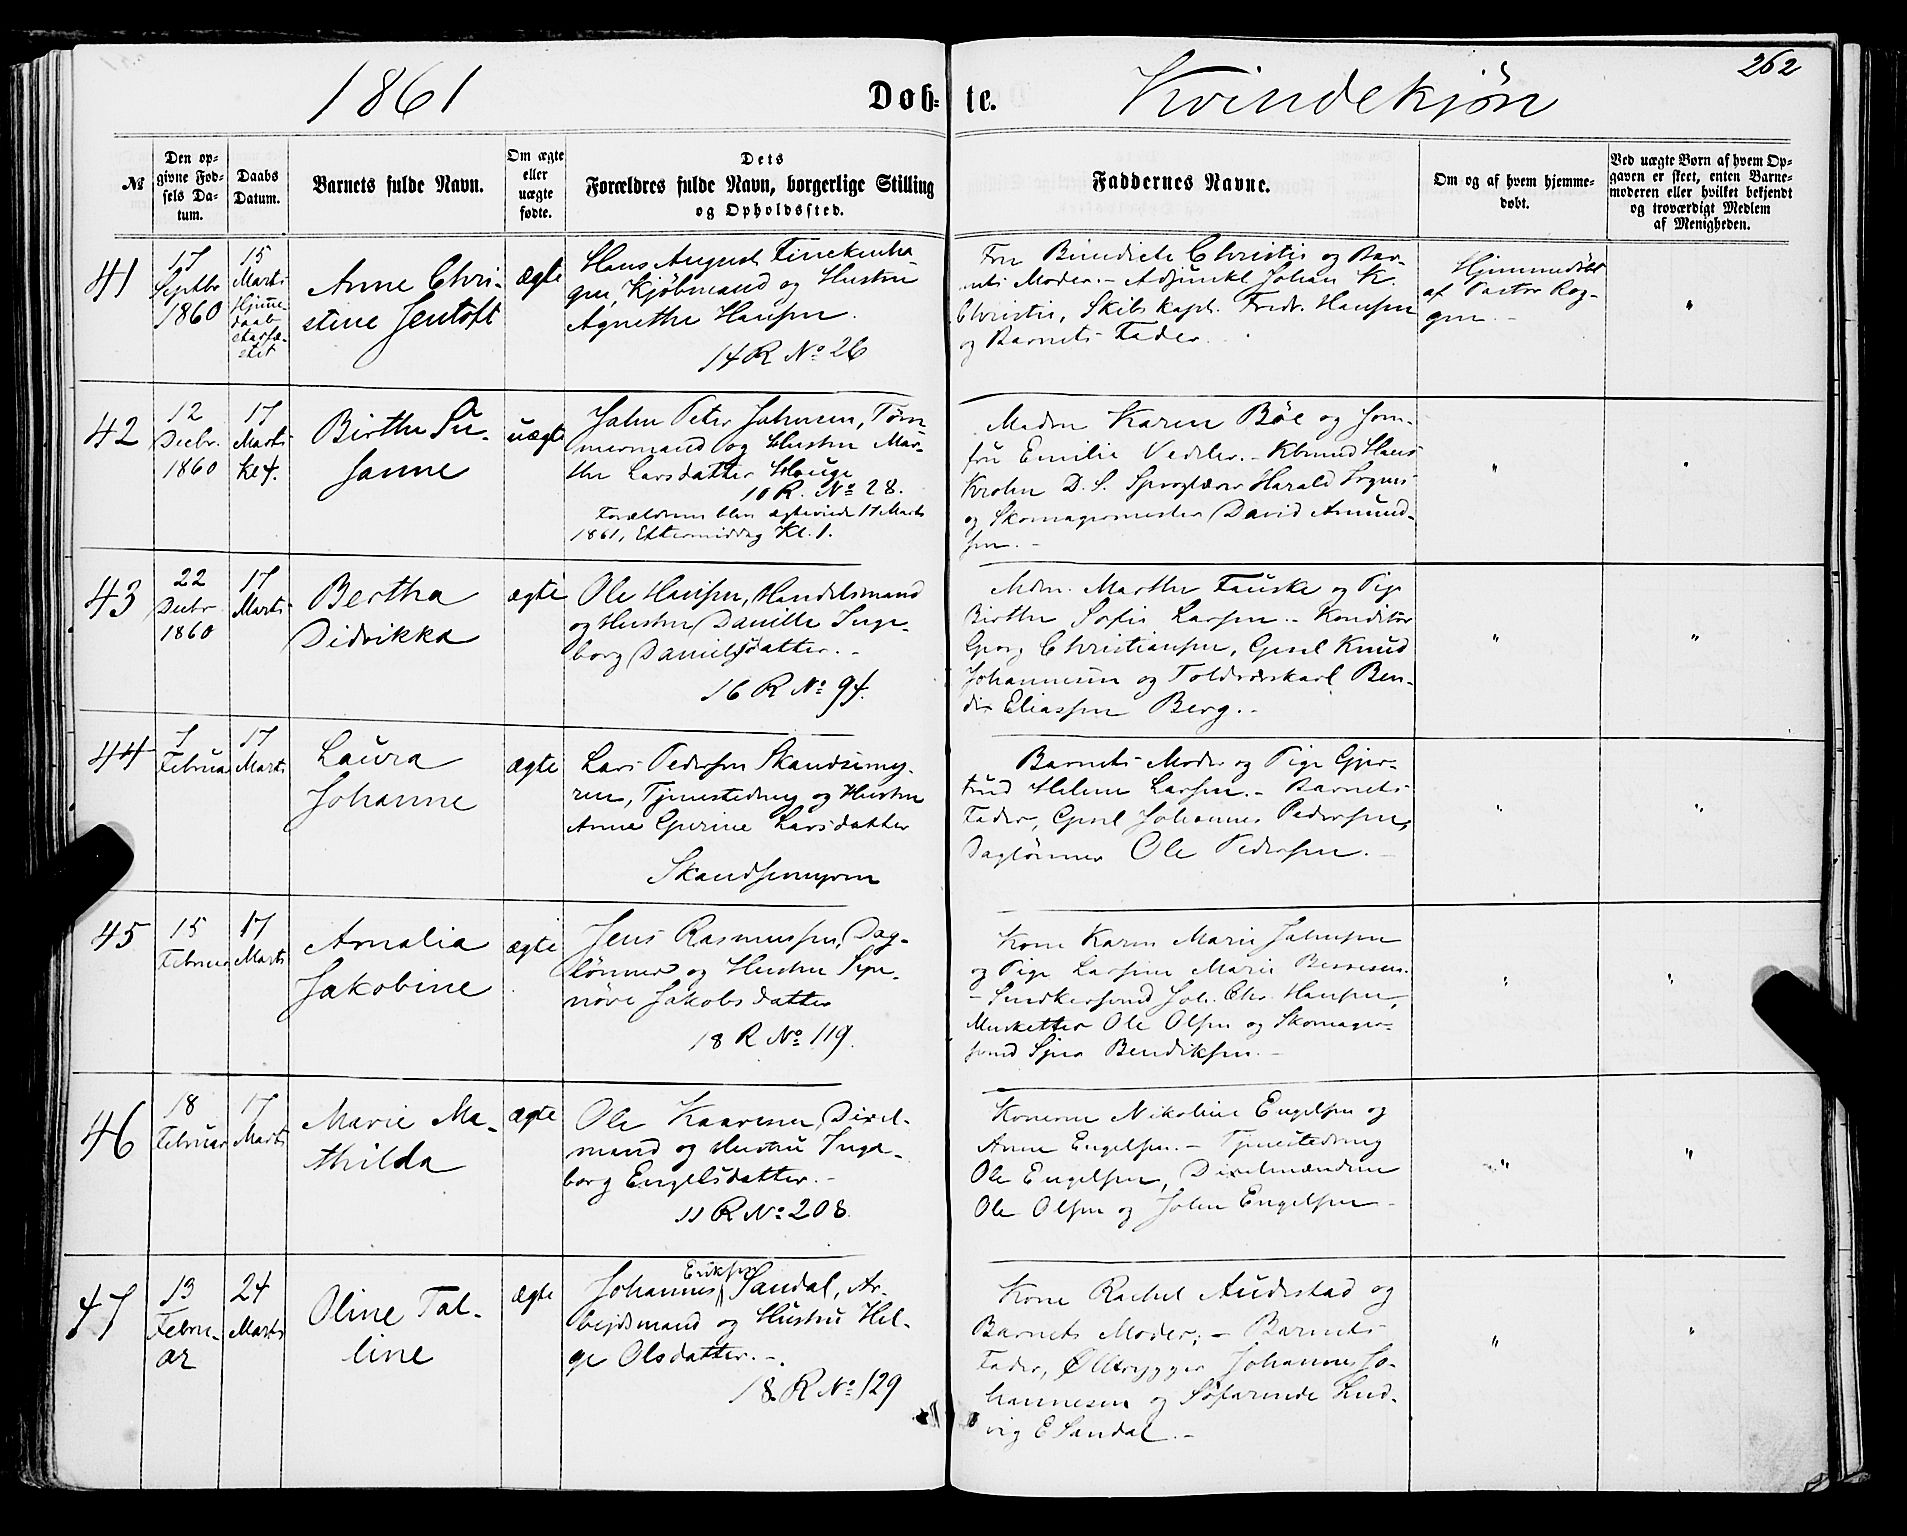 262
1861 Døb- te. Kvindekjøn
№
Den op-
givne Fød-
sels Da-
tum.
Daabs
Datum.
Barnets fulde Navn.
Om ægte
eller
uægte
fødte.
Dets
Forældres fulde Navn, borgerlige Stilling
og Opholdssted.
Faddernes Navne.
Om og af hvem hjemme-
døbt.
Ved uægte Børn af hvem Op-
gaven er skeet, enten Barne-
moderen eller hvilket bekjendt
og troværdigt Medlem
af Menigheden.
41
17
Septbr
1860
15
Marts
Hjeme
daab
stadfæ-
stet
Anne Chri-
stine Jentoft
ægte
Hans August Finckenha-
gen, Kjøbmand og Hustru
Agnethe Hansen.
14 R № 26
Fru Bendicte Christie og Bar-
nets Moder. - Adjunkt Johan K.
Christie, Skibskapt. Fredr. Hansen
og Barnets Fader.
Hjemmedøbt
af Pastor Rog-
gen. -
"
42
12
Decbr.
1860
17
Marts
Kl 4.
Birthe Su-
sanne
uægte
John Peter Johnsen, Tøm-
mermand og Hustru Mar-
the Larsdatter Hauge
10 R. № 28.
Forældrene blev ægteviede 17 Marts
1861, Eftermiddag Kl. 1.
Madm Karen Böe og Jom-
fru Emilie Vedeler. - Kbmd Hans
Krohn D. S. Sproglærer Harald
og Skomagermester David Amund-
sen. -
"
"
43
22
Decbr
1860
17
Marts
Bertha
Didrikka
ægte
Ole Hansen, Handelsmand
og Hustru Danille Inge-
borg Danielsdatter. -
16 R № 94.
Mdm. Marthe Fauske og Pige
Birthe Sofie Larsen. - Konditor
Georg Christiansen, Gesel Knud
Johannesen og Toldrorskarl Ben-
dix Eliassen Berg. -
"
"
44
1
Februar
17
Marts
Laura
Johanne
ægte
Lars Pedersen Skandsemy-
ren, Tjenestedreng og Hustru
Anne Gurine Larsdatter
Skandsemyren
Barnets Moder og Pige Gjer-
trud Helene Larsen. - Barnets
Fader, Gesel Johannes Pedersen,
Daglønner Ole Pedersen. -
"
"
45
15
Februar
17
Marts
Amalia
Jakobine
ægte
Jens Rasmussen, Dag-
lønner og Hustru Syn-
növe Jakobsdatter
18 R № 119.
Kone Karen Marie Johnsen
og Pige Larsine Marie
- Snedkersvend Joh. Chr. Hansen,
Musketter Ole Olsen og Skomager-
svend Sjur Bendiksen. -
"
"
46
18
Februar
17
Marts
Marie Ma-
thilda
ægte
Ole Knaresen, Dixel-
mand og Hustru Inge-
borg Engelsdatter. -
11 R № 208.
Konerne Nikoline Engelsen og
Anne Engelsen. - Tjenestedreng
Ole Engelsen, Dixelmændene
Ole Olsen og John Engelsen -
"
"
47
13
Febru-
ar
24
Marts
Oline Tal-
line
ægte
Eriksen
Johannes Sandal, Ar-
bejdsmand og Hustru Hel-
ge Olsdatter. -
18. R № 129
Kone Rachel Audestad og
Barnets Moder; - Barnets
Fader, Øltrygger Johannes Jo-
hannesen og Søfarende Lud-
vig E Sandal. -
"
"